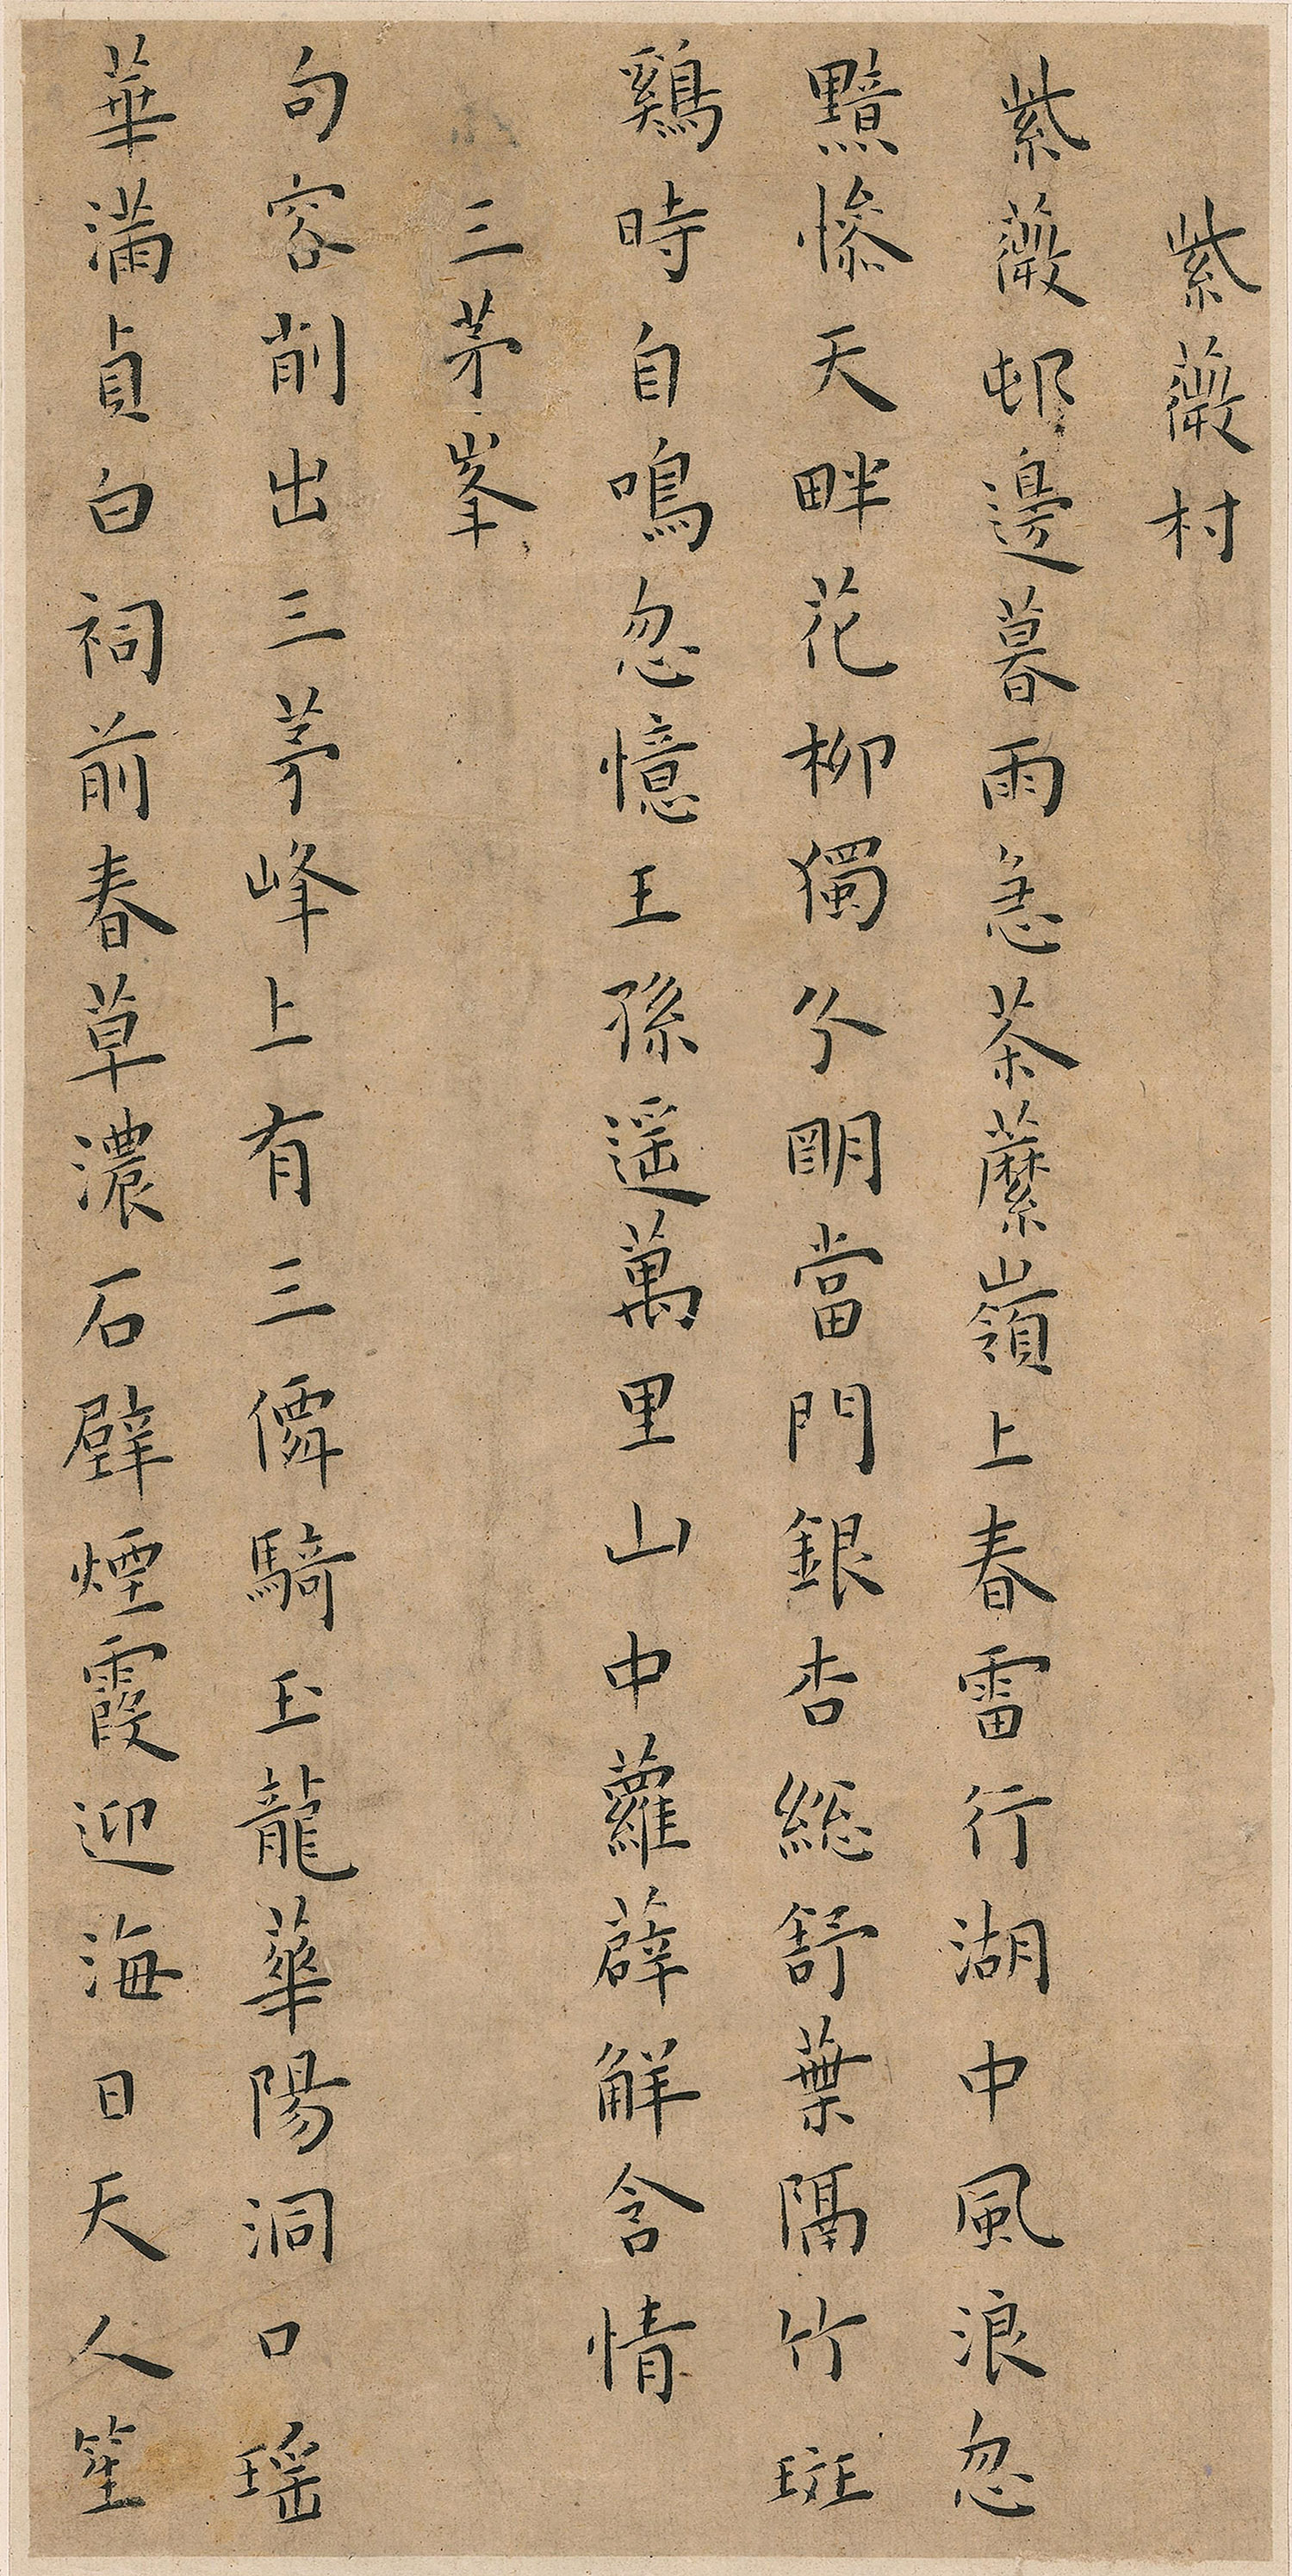 紫薇村
紫薇邨邊暮雨急茶蘪嶺上春雷行湖中風浪忽
黯慘天畔花柳獨分明當門銀杏總舒葉隔竹斑
鷄時自鳴忽憶王孫遥萬里山中蘿薜解含情
三茅峯
句容削出三茅峰上有三僊騎玉龍華陽洞口瑶
華滿貞白祠前春草濃石壁煙霞迎海日天人笙